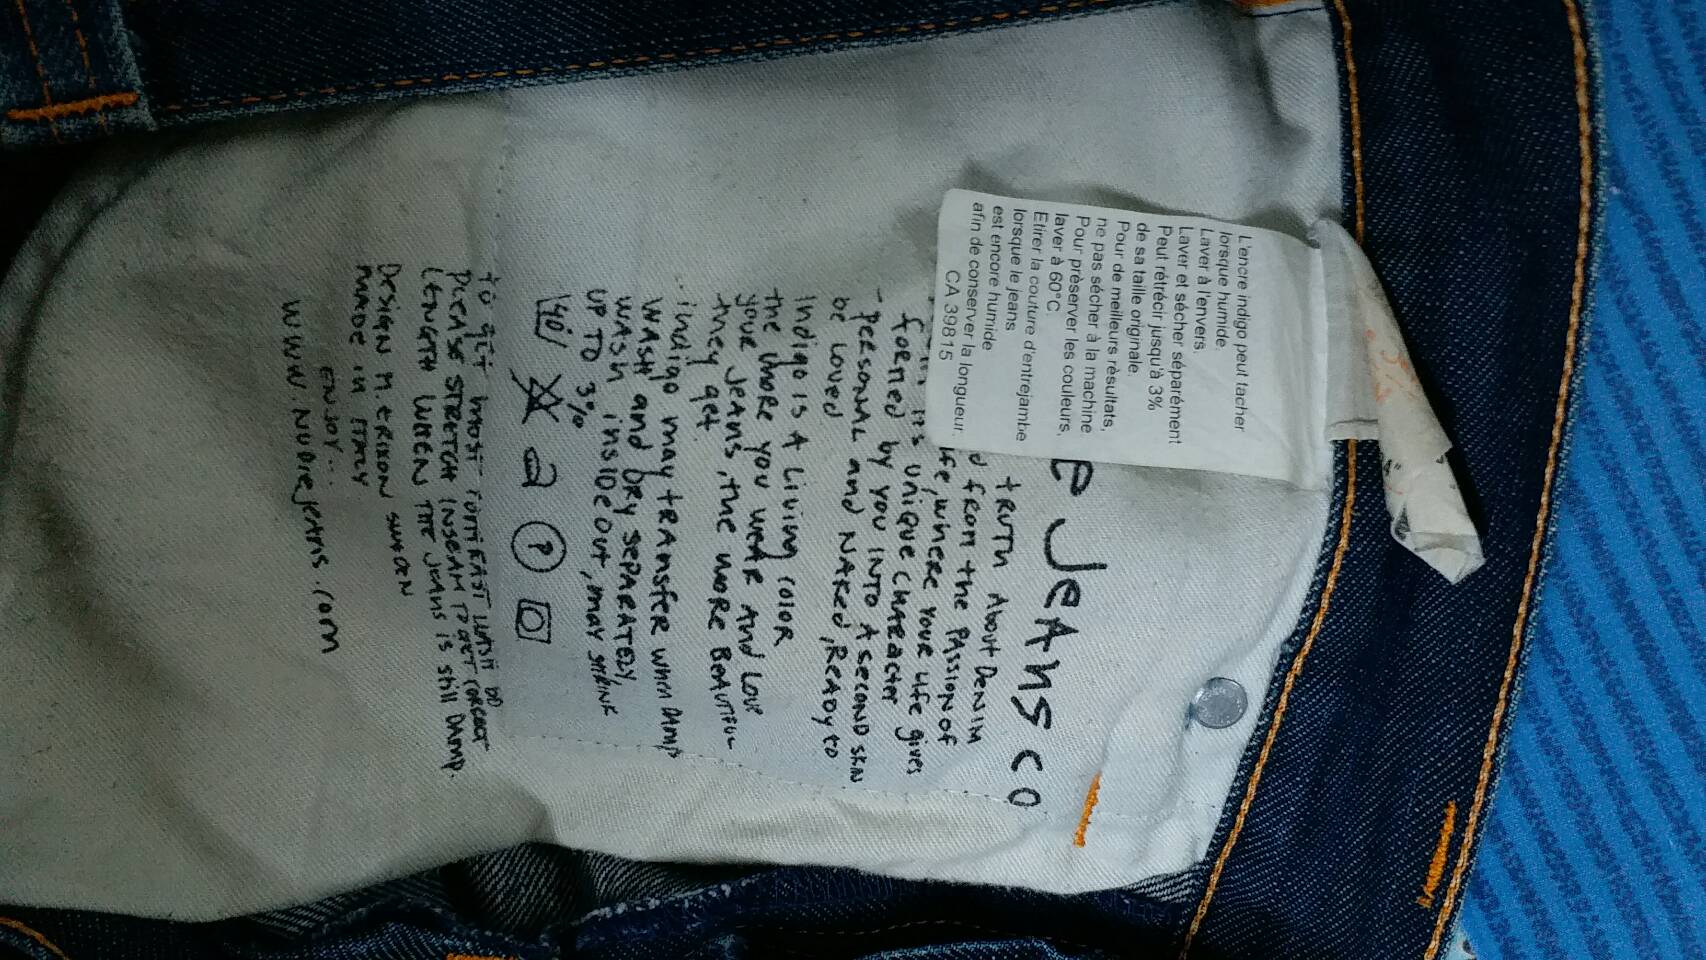 L'encre indigo peut tacher
lorsque humide.
Laver à l'envers.
Laver et sécher séparément
Peut rétrécir jusqu'à 3%
de sa taille originale.
Pour de meilleurs résultats,
ne pas sécher à la machine
Pour préserver les couleurs,
laver à 60°C
Etirer la couture d'entrejambe
lorsque le jeans
est encore humide
afin de conserver la longueur.
CA 39815
e JeAns co
TRUTH About DENIM
d from the PASSION of
ife, where your life gives
its UNIQUE CHARACTER
formed by you INTO A second skin
- PERSONAL and NAKED, READY to
be loved
Indigo is A Living color
the more you wear And Love
your jeans, the more BEAUTIFUL
they get.
..indigo may transfer when DAMP
WASH and DRY SEPARATELY,
WASH inside out, may SHRINK
UP TO 3%
40
P
TO GET MOST FORM FAST WASH DO
PLEASE STRETCH INSEAM TO GET CORRECT
LENGTH WHEN THE JEANS is still DAMP.
DESIGN M. ERIXON SWEDEN
MADE in ITALY
ENJOY...
WWW.NUDIEJEANS.COM